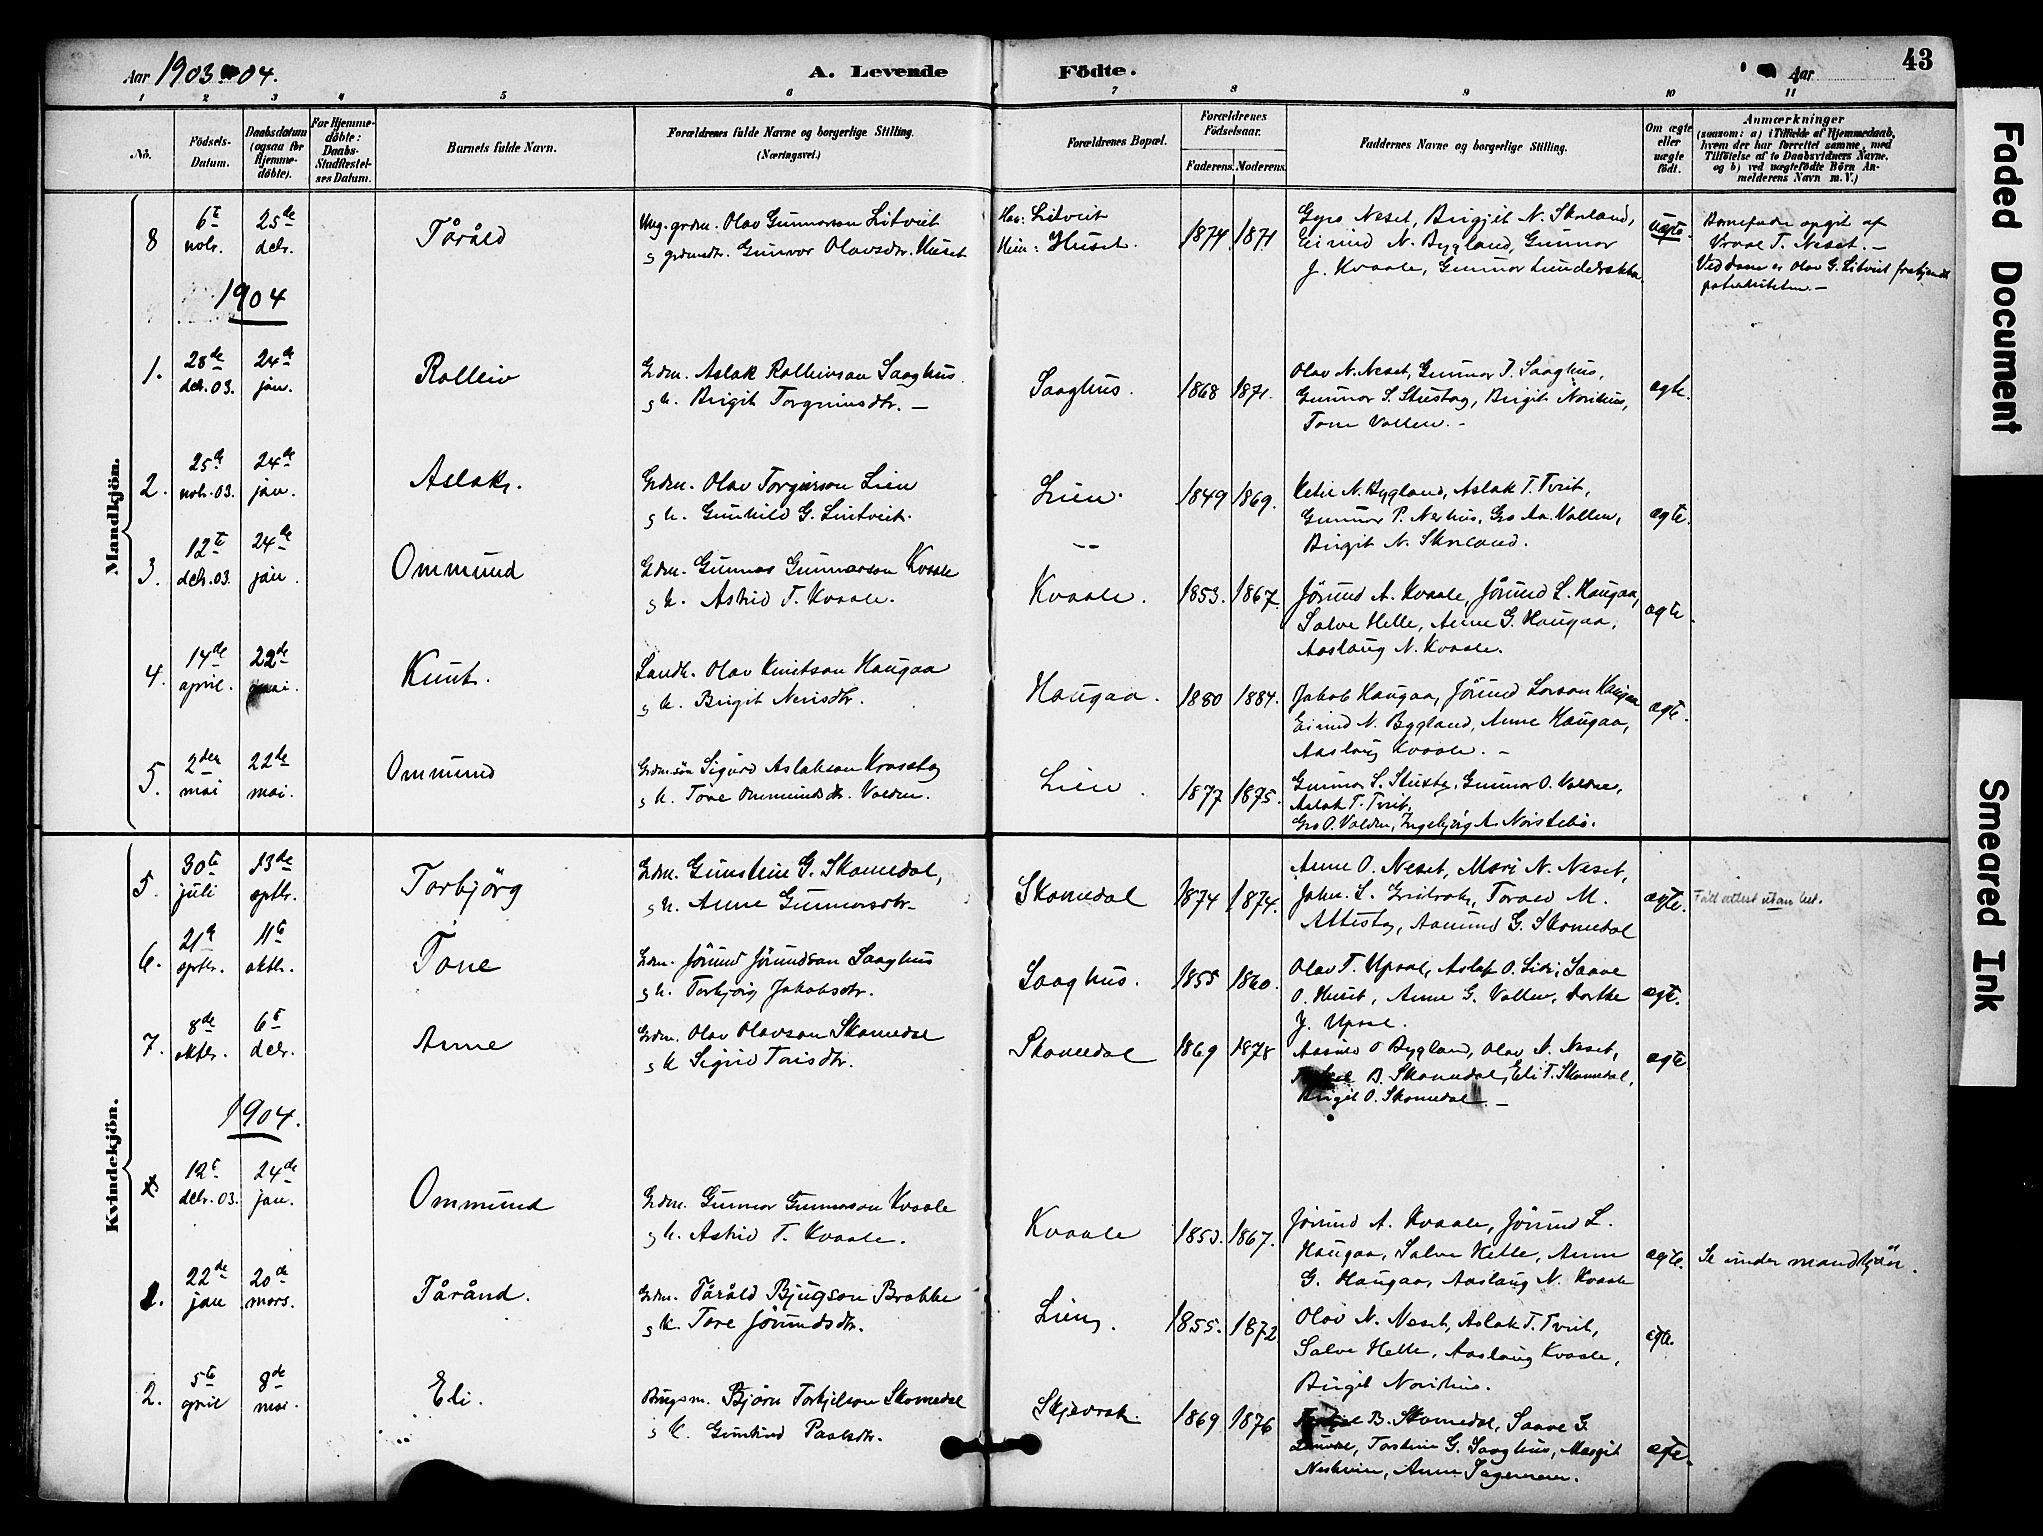 Aar 1903-04.
A. Levende Födte.
Aar
43
1 2 3 4 5 6 7 8 9 10 11
No.
Födsels-Datum.
Daabsdatum (ogsaa for Hjemme-döbte).
For Hjemme-döbte: Daabs-Stadfæstel-ses Datum.
Barnets fulde Navn.
Forældrenes fulde Navne og borgerlige Stilling. (Næringsvei.)
Forældrenes Bopæl.
Forældrenes Födselsaar.
Faderens. Moderens.
Faddernes Navne og borgerlige Stilling.
Om ægte eller uægte födt.
Anmærkninger (saasom: a) i Tilfælde af Hjemmedaab, hvem der har forrettet samme, med Tilföielse af to Daabsvidners Navne, og b) ved uægtefödte Börn An-melderens Navn m. V.)
Mandkjön.
8 6te novbr. 25de decbr. Tåråld
Ung. grdm. Olav Gunnarson Litveit
og grdmdtr. Gunvor Olavsdtr. Huset
Han: Litveit
Hun: Huset.
1874 1871
Gyro Neset, Birgjit N. Skreland,
Eivind N. Bygland, Gunnar
J. Kvaale, Gunnar
uægte.
Barnefader opgit af
Vraal T. Neset.
Ved dom er Olav G. Litveit frakjendt
paterniteten.
1904
1. 28de decbr. 03. 24de jan. Rolleiv
Grdm. Aslak Rolleivson Saaghus.
og h. Birgit Torgrimsdtr.
Saaghus. 1868 1871.
Olav N. Neset, Gunnar J. Saaghus,
Gunnar S. Strestøg, Birgit Norihus,
Tone Vallen.
ægte.
2. 25de novbr. 03. 24de jan. Aslak.
Grdm. Olav Torgierson Lien
og h. Gunhild G. Lintveit.
Lien. 1849 1869.
Ketil N. Bygland, Aslak T. Tveit,
Gunnar P. Neshus, Gro Aa. Vallen,
Birgit N. Skreland.
ægte.
3. 12te decbr. 03. 24de jan. Ommund
Grdm. Gunnar Gunnarson Kvaale
og h. Astrid T. Kvaale.
Kvaale. 1853. 1867.
Jørund A. Kvaale, Jørund L. Haugaa,
Salve Helle, Anne G. Haugaa,
Aaslaug N. Kvaale.
ægte.
4. 14de april. 22de mai. Knut.
Landh. Olav Knutson Haugaa
og h. Birgit Nerisdtr.
Haugaa. 1880 1884.
Jakob Haugaa, Jørund Larson Haugaa
Eivind N. Bygland, Anne Haugaa,
Aaslaug Kvaale.
ægte.
5. 2den mai 22de mai. Ommund
Grdm.søn Sigurd Aslakson
og h. Tone Ommundsdtr. Valden.
Lien. 1877 1875.
Gunnar O. Valden,
Aslak T. Tveit,
Gro O. Valden, Ingebjørg A. Noistebø.
Kvindekjön.
5. 30te juli 13de sptbr. Torbjörg
Grdm. Gunstein G. Skomedal,
og h. Anne Gunnarsdtr.
Skomedal 1874 1874.
Anne O. Neset, Mari N. Neset,
John. S. Torald M.
Attestøg, Aamund G. Skomedal
ægte.
Født attest utan bet.
6. 21de sptbr. 11te oktbr. Tone
Grdm. Jörund Jörundson Saaghus
og h. Torbjörg Jakobsdtr.
Saaghus. 1855 1860.
Olav T. Upsal, Aslak O. Lidi, Saave
O. Huset, Anne G. Vallen, Dorthe
J. Upsal.
ægte.
7. 8de oktbr. 6te decbr. Anne
Grdm. Olav Olavson Skomedal
og h. Sigrid Tarisdtr.
Skomedal 1869 1878
O Bygland, Olav N. Neset,
B. Skomedal, Eli T. Skomedal,
Birgit O. Skomedal.
ægte
1904.
12te decbr. 03. 24de jan. Ommund
Grdm. Gunnar Gunnarson Kvaale
og h. Astrid T. Kvaale.
Kvaale 1853. 1867.
Jörund A. Kvaale, Jörund L.
Haugaa, Salve Helle, Anne
G. Haugaa, Aaslaug N. Kvaale
ægte.
Se under mandkjön.
1. 22de jan 20de mars. Tåränd.
Grdm. Tåråld Bjugson Brokke
og h. Tore Jörundsdtr.
Lieng. 1855. 1872
Olav N. Neset, Aslak T. Tveit,
Salve Helle, Aaslaug Kvaale,
Birgit Norihus.
ægte.
2. 5te april 8de mai. Eli.
Brugsm. Björn Torkjelson Skomedal
og h. Gunhild Paalsdtr.
Skjevrak. 1869 1876
B. Skomedal, Saave G.
Torstein G. Saaghus, Margit
Neshein, Anne
ægte.
Faded Document
Smeared Ink